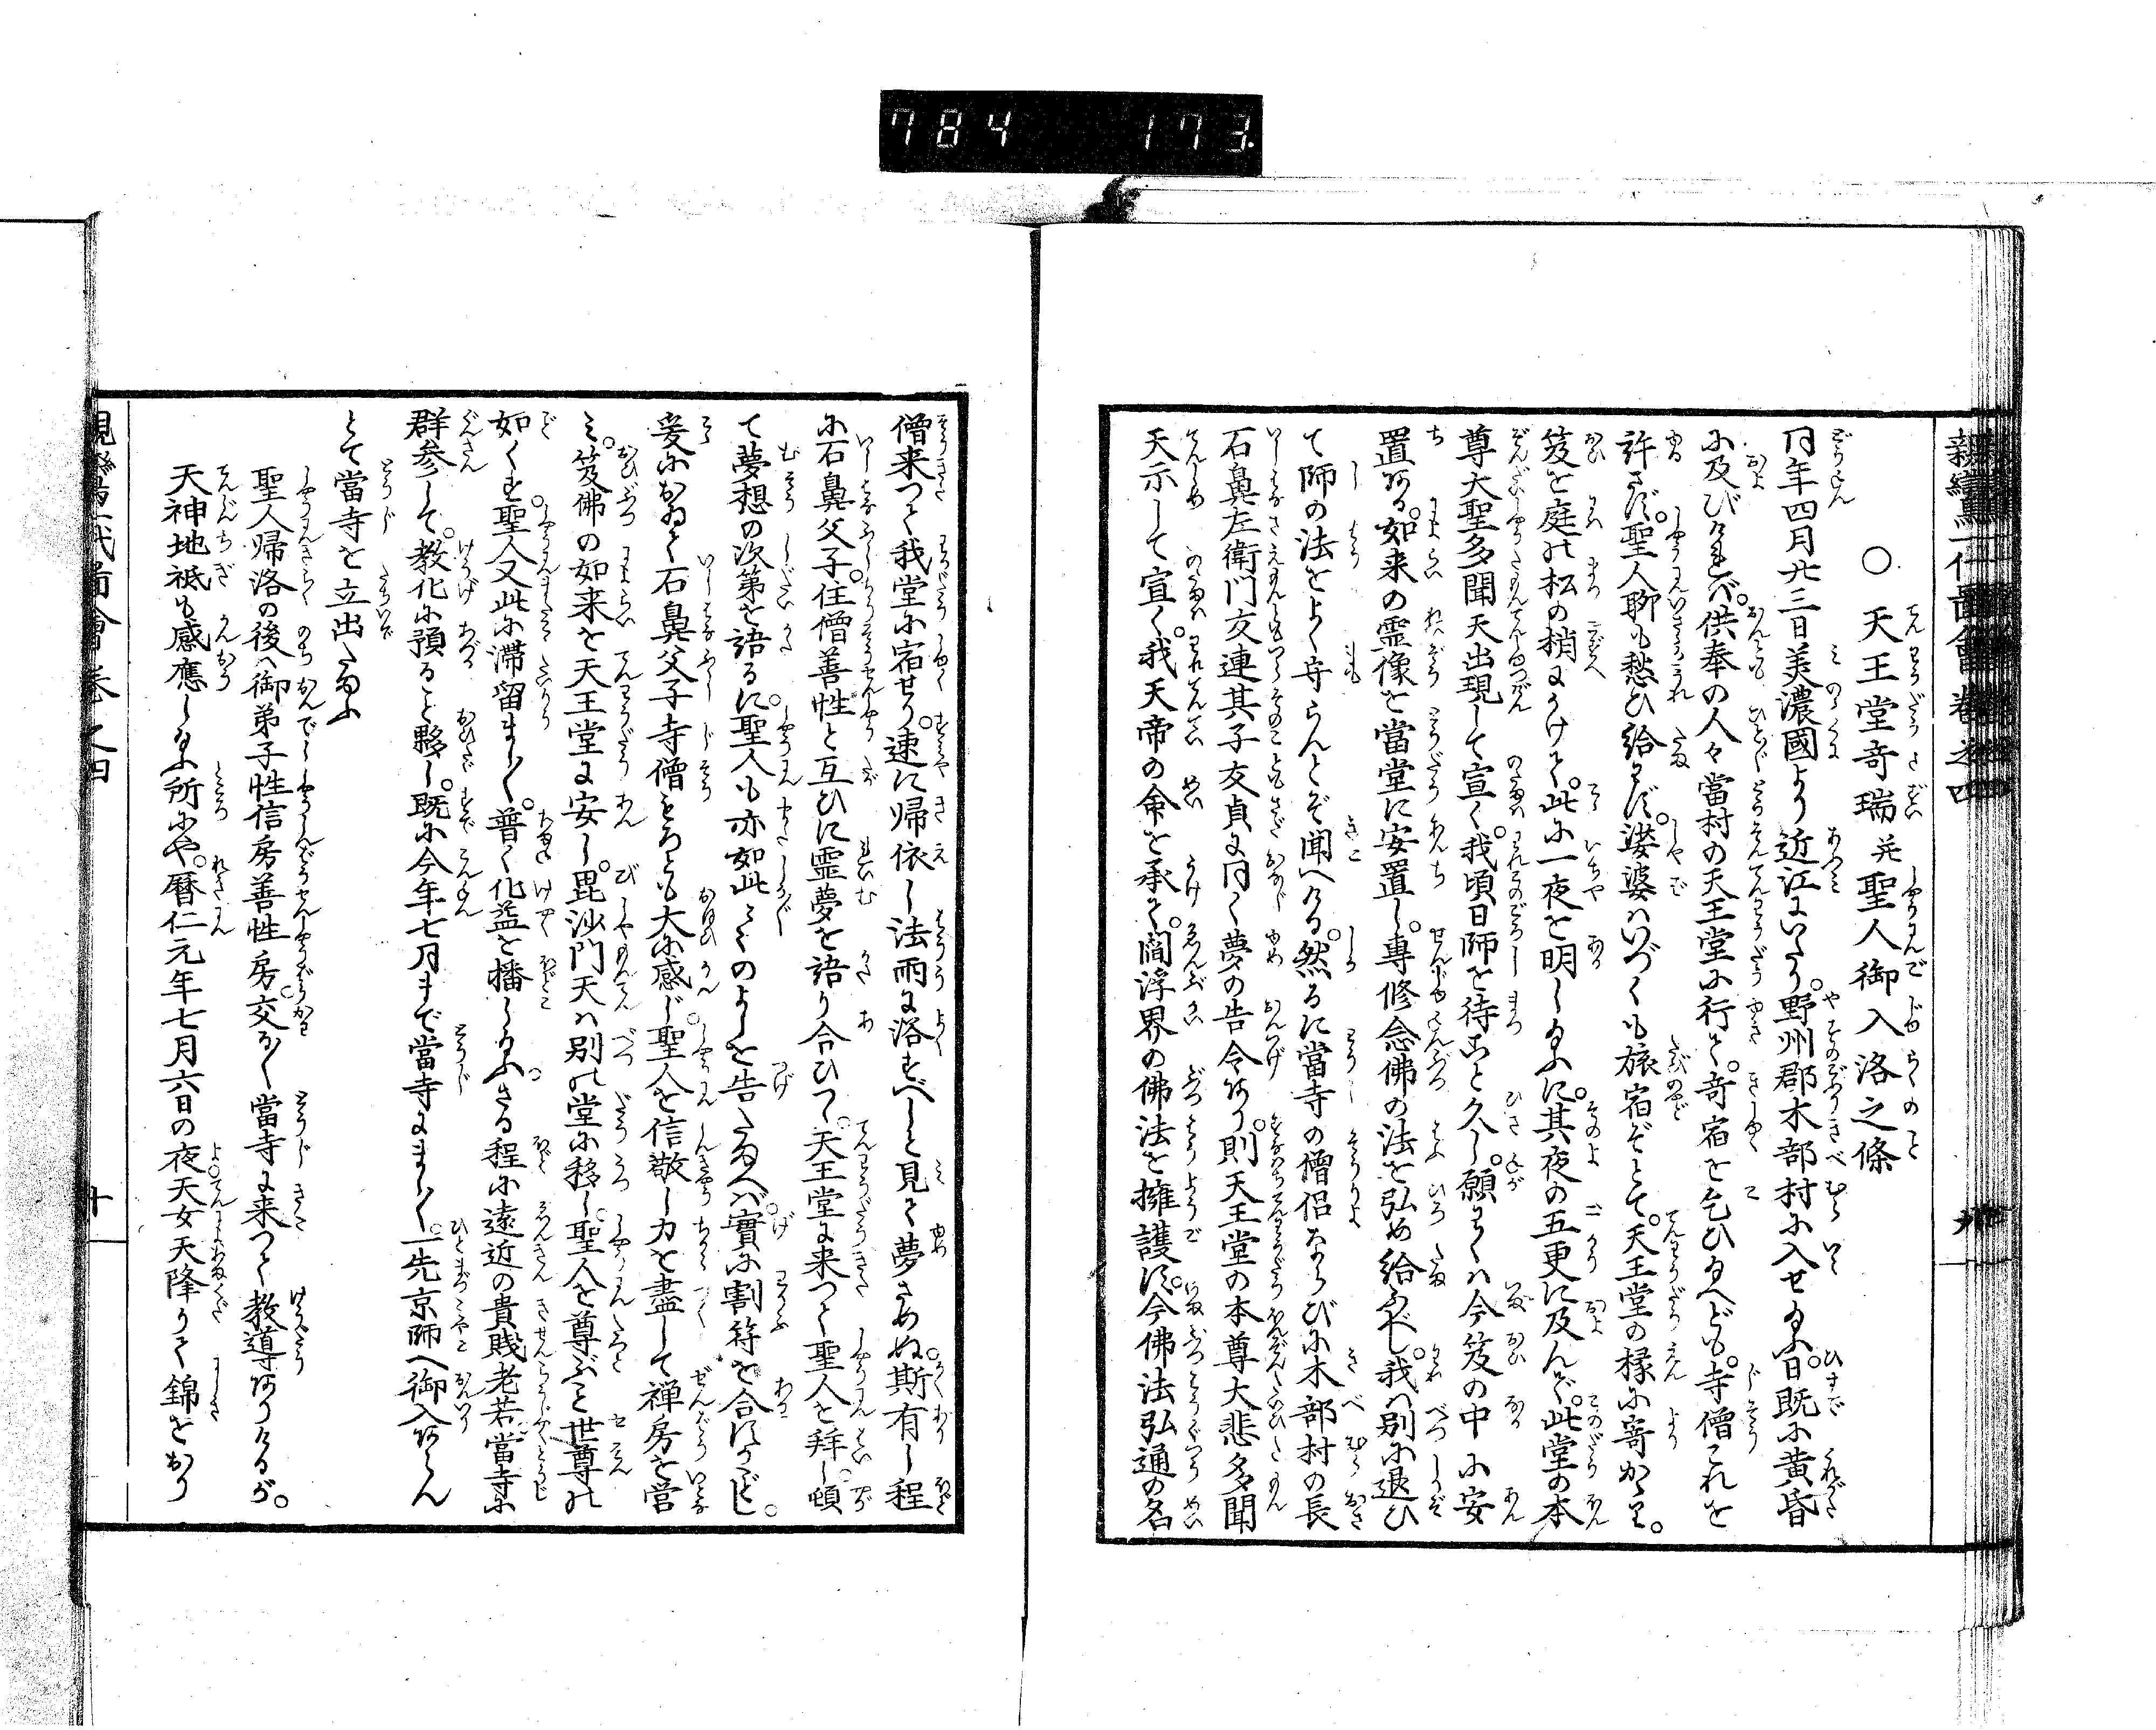 784 173.
親鸞聖人一代圖會卷之四
〇天王堂奇瑞并聖人御入洛之條
同年四月廿三日美濃國より近江にいたり。野州郡木部村に入せ給ふ。日既に黄昏
に及びければ。供奉の人々當村の天王堂に行て。寄宿を乞ひ給へども。寺僧これを
許さず。聖人聊も愁ひ給はず。娑婆はいづくも旅宿ぞとて。天王堂の椽に寄かゝり。
笈を庭の松の梢にかけて。此に一夜を明し給ふに。其夜の五更に及んで。此堂の本
尊大聖多聞天出現して宣く。我頃日師を待こと久し。願はくは今笈の中に安
置ある。如来の霊像を當堂に安置し。専修念佛の法を弘め給ふべし。我は別に退ひ
て師の法をよく守らんとぞ聞へける。然るに當寺の僧侶ならびに木部村の長
石畠左衛門友連其子友貞に同く夢の告令あり。則天王堂の本尊大悲多聞
天示して宣く。我天帝の命を承て。閻浮界の佛法を擁護す。今佛法弘通の名
僧来つて我堂に宿せり。速に帰依し法雨に浴すべしと見て夢さめぬ。斯有し程
に石畠父子。住僧善性と互ひに霊夢を語り合ひて。天王堂に来つて聖人を拜し。頓
て夢想の次第を語るに。聖人も亦如此々々のよしを告たまへば。實に割符を合すがごとし。
爰におゐて石畠父子寺僧もろとも大に感じ。聖人を信敬し力を盡して禅房を営
み。笈佛の如来を天王堂に安し。毘沙門天は別の堂に移し。聖人を尊ぶこと世尊の
如くす。聖人又此に滞留まし〳〵。普く化益を播し給ふ。さる程に遠近の貴賤老若當寺に
群参して。教化に預ること夥し。既に今年七月まで當寺にまし〳〵。一先京師へ御入あらん
とて當寺を立出たまふ
聖人帰洛の後は御弟子性信房善性房。交る〳〵當寺に来つて教導ありけるが。
天神地祇も感應し給ふ所にや。暦仁元年七月六日の夜天女天降りて錦をおり
十